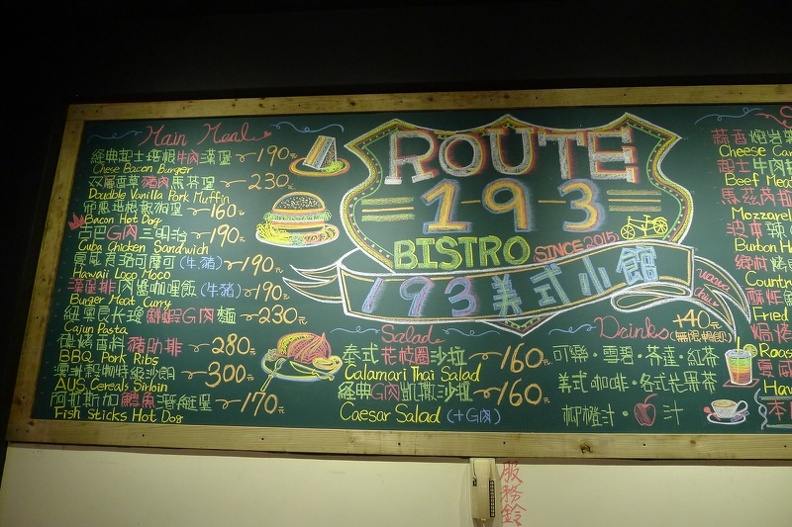 Main Meal
經典起士培根牛肉漢堡 190元
Chese Bacon Burger
双層香草豬肉馬芬堡 230元
Doudble Vanilla Pork Muffin
160元
Bacon Hot Dog
古巴G肉三明治 190元
Cuba Chicken Sandwich
夏威夷洛可摩可(牛豬) 190元
Hawaii Loco Moco
漢堡排肉醬咖哩飯(牛豬) 190元
Burger Meat Curry
紐奧良长堤鮮蝦G肉麵 230元
Cajun Pasta
豬肋排 280元
BBQ Pork Ribs
300元
AUS. Cereals Sirloin
阿拉斯加鱈魚潛艇堡 170元
Fish Sticks Hot Dog
ROUTE
193
BISTRO SINCE 2015
193美式小館
Salad
泰式花枝圈沙拉 160元
Calamari Thai Salad
經典G肉凱撒沙拉 160元
Caesar Salad (+G肉)
Drinks +40元
(無限暢飲)
可樂·雪碧·芬達·紅茶
美式咖啡·各式花果茶
柳橙汁· 汁
Cheese
起士牛肉
Beef Meat
Mozzarel
Burbon H
Country
Fried
Roas
Haw
服務鈴